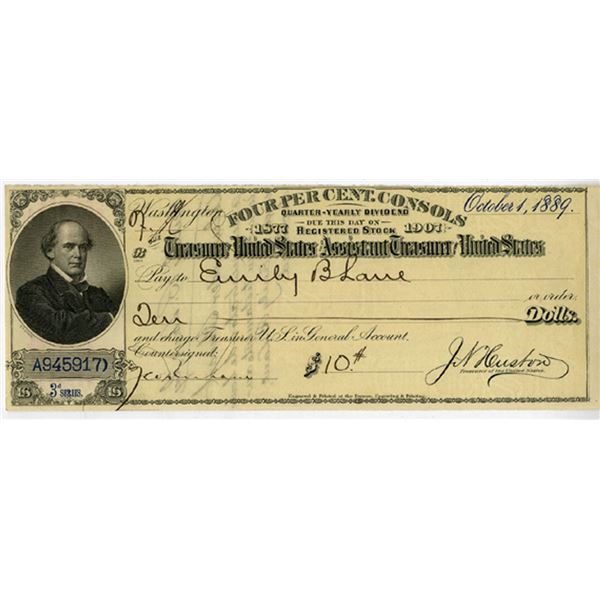 Washington,
FOUR PER CENT. CONSOLS
October 1, 1889.
QUARTER-YEARLY DIVIDEND
DUE THIS DAY ON
1877 REGISTERED STOCK 1907
The Treasurer United States or Assistant Treasurer United States
Pay to Emily B Lane
or order
Ten Dolls.
and charge Treasurer U.S. in General Account.
Countersigned:
$10.#
J N Huston
Treasurer of the United States.
A945917
3d SERIES.
Engraved & Printed at the Bureau, Engraving & Printing.